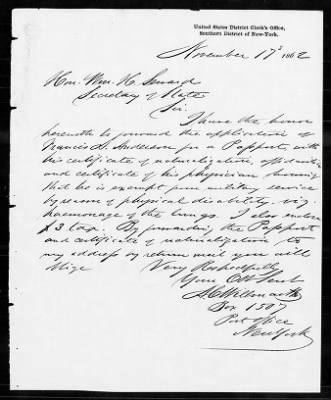 United States District Clerk's Office,
Southern District of New-York.
November 17th 1862
Hon. Wm. H. Seward
Secretary of State
Sir
I have the honor
herewith to forward the application of
Francis S. Anderson for a Passport, with
his certificate of naturalization, affidavit
and certificate of his physician showing
that he is exempt from military service
by reason of physical disability. viz.
haemorrage of the lungs. I also enclose
$3 tax. By forwarding the Passport
and certificate of naturalization to
my address by return mail you will
oblige Very Respectfully
Your Obt Servt
Box 1507
Post Office
New York